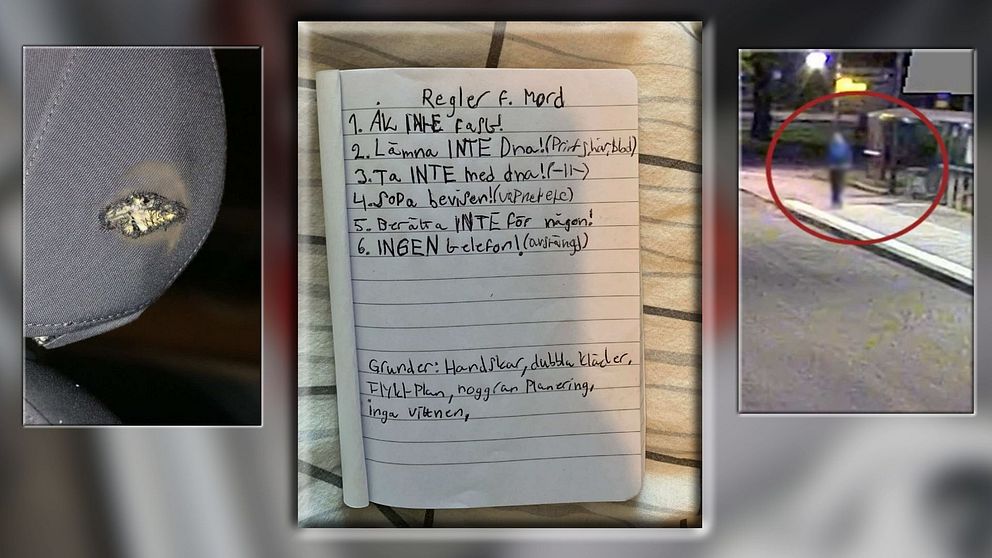 Regler f. Mord
1. Åk INTE fast!
2. Lämna INTE Dna! (Print, hår, blod)
3. Ta INTE med dna! (-||-)
4. Sopa bevisen! (vapnet etc)
5. Berätta INTE för någon!
6. INGEN telefon! (avstängd)
Grunder: Handskar, dubbla kläder,
Flykt Plan, noggran Planering,
inga vittnen,